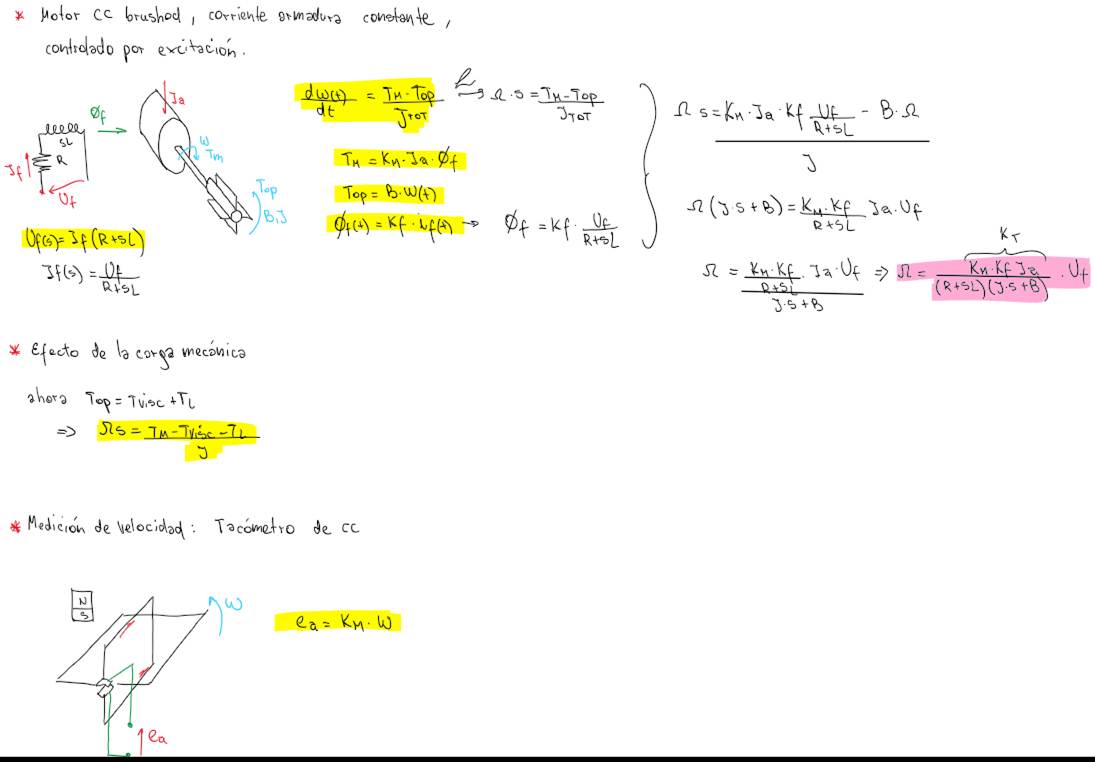 * Motor CC brushed, corriente armadura constante,
controlado por excitación.
Ja
Øf
sL
R
Jf
Uf
W
Tm
Top
B,J
Uf(s) = Jf (R+sL)
Jf(s) = Uf / R+sL
dW(t) / dt = TM - Top / JTOT → Ω·s = TM - Top / JTOT
TM = KM·Ja·Øf
Top = B·W(t)
Øf(t) = Kf·if(t) → Øf = Kf · Uf / R+sL
Ω s = KM·Ja·Kf Uf / R+sL - B·Ω
J
Ω (J·s+B) = KM·Kf / R+sL Ja·Uf
KT
Ω = KM·Kf / R+sL · Ja·Uf / J·s+B ⇒ Ω = KM·Kf Ja / (R+sL)(J·s+B) · Uf
* Efecto de la carga mecánica
ahora Top = Tvisc + TL
⇒ Ωs = TM - Tvisc - TL / J
* Medición de velocidad: Tacómetro de CC
N
S
W
ea = KM·W
ea